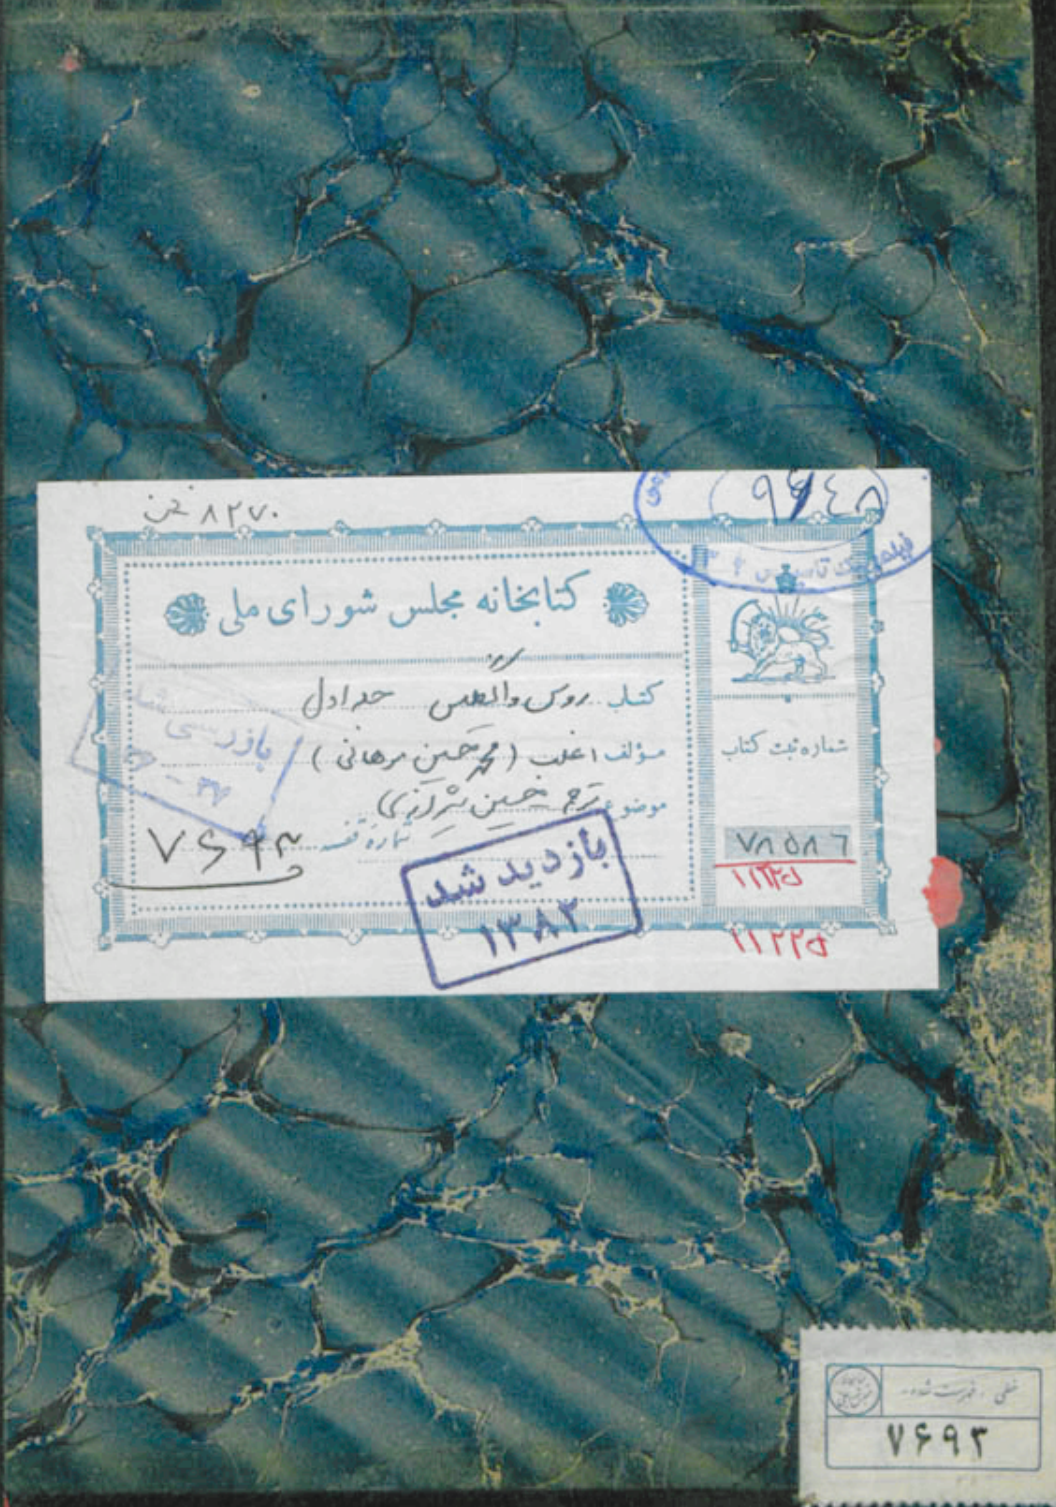 ۸۲۷۰
۹۶۴۸
کتابخانه مجلس شورای ملی
کتاب روس و انگلیس جلد اول
مؤلف اغلب (محمد حسین برهانی)
موضوع ترجمه حسین شیرازی
شماره قفسه ۷۶۹۳
شماره ثبت کتاب
۷۸۵۸۶
۱۱۲۲۵
بازرسی شد
۳۷
بازدید شد
۱۳۸۲
خطی - فهرست شده -
۷۶۹۳